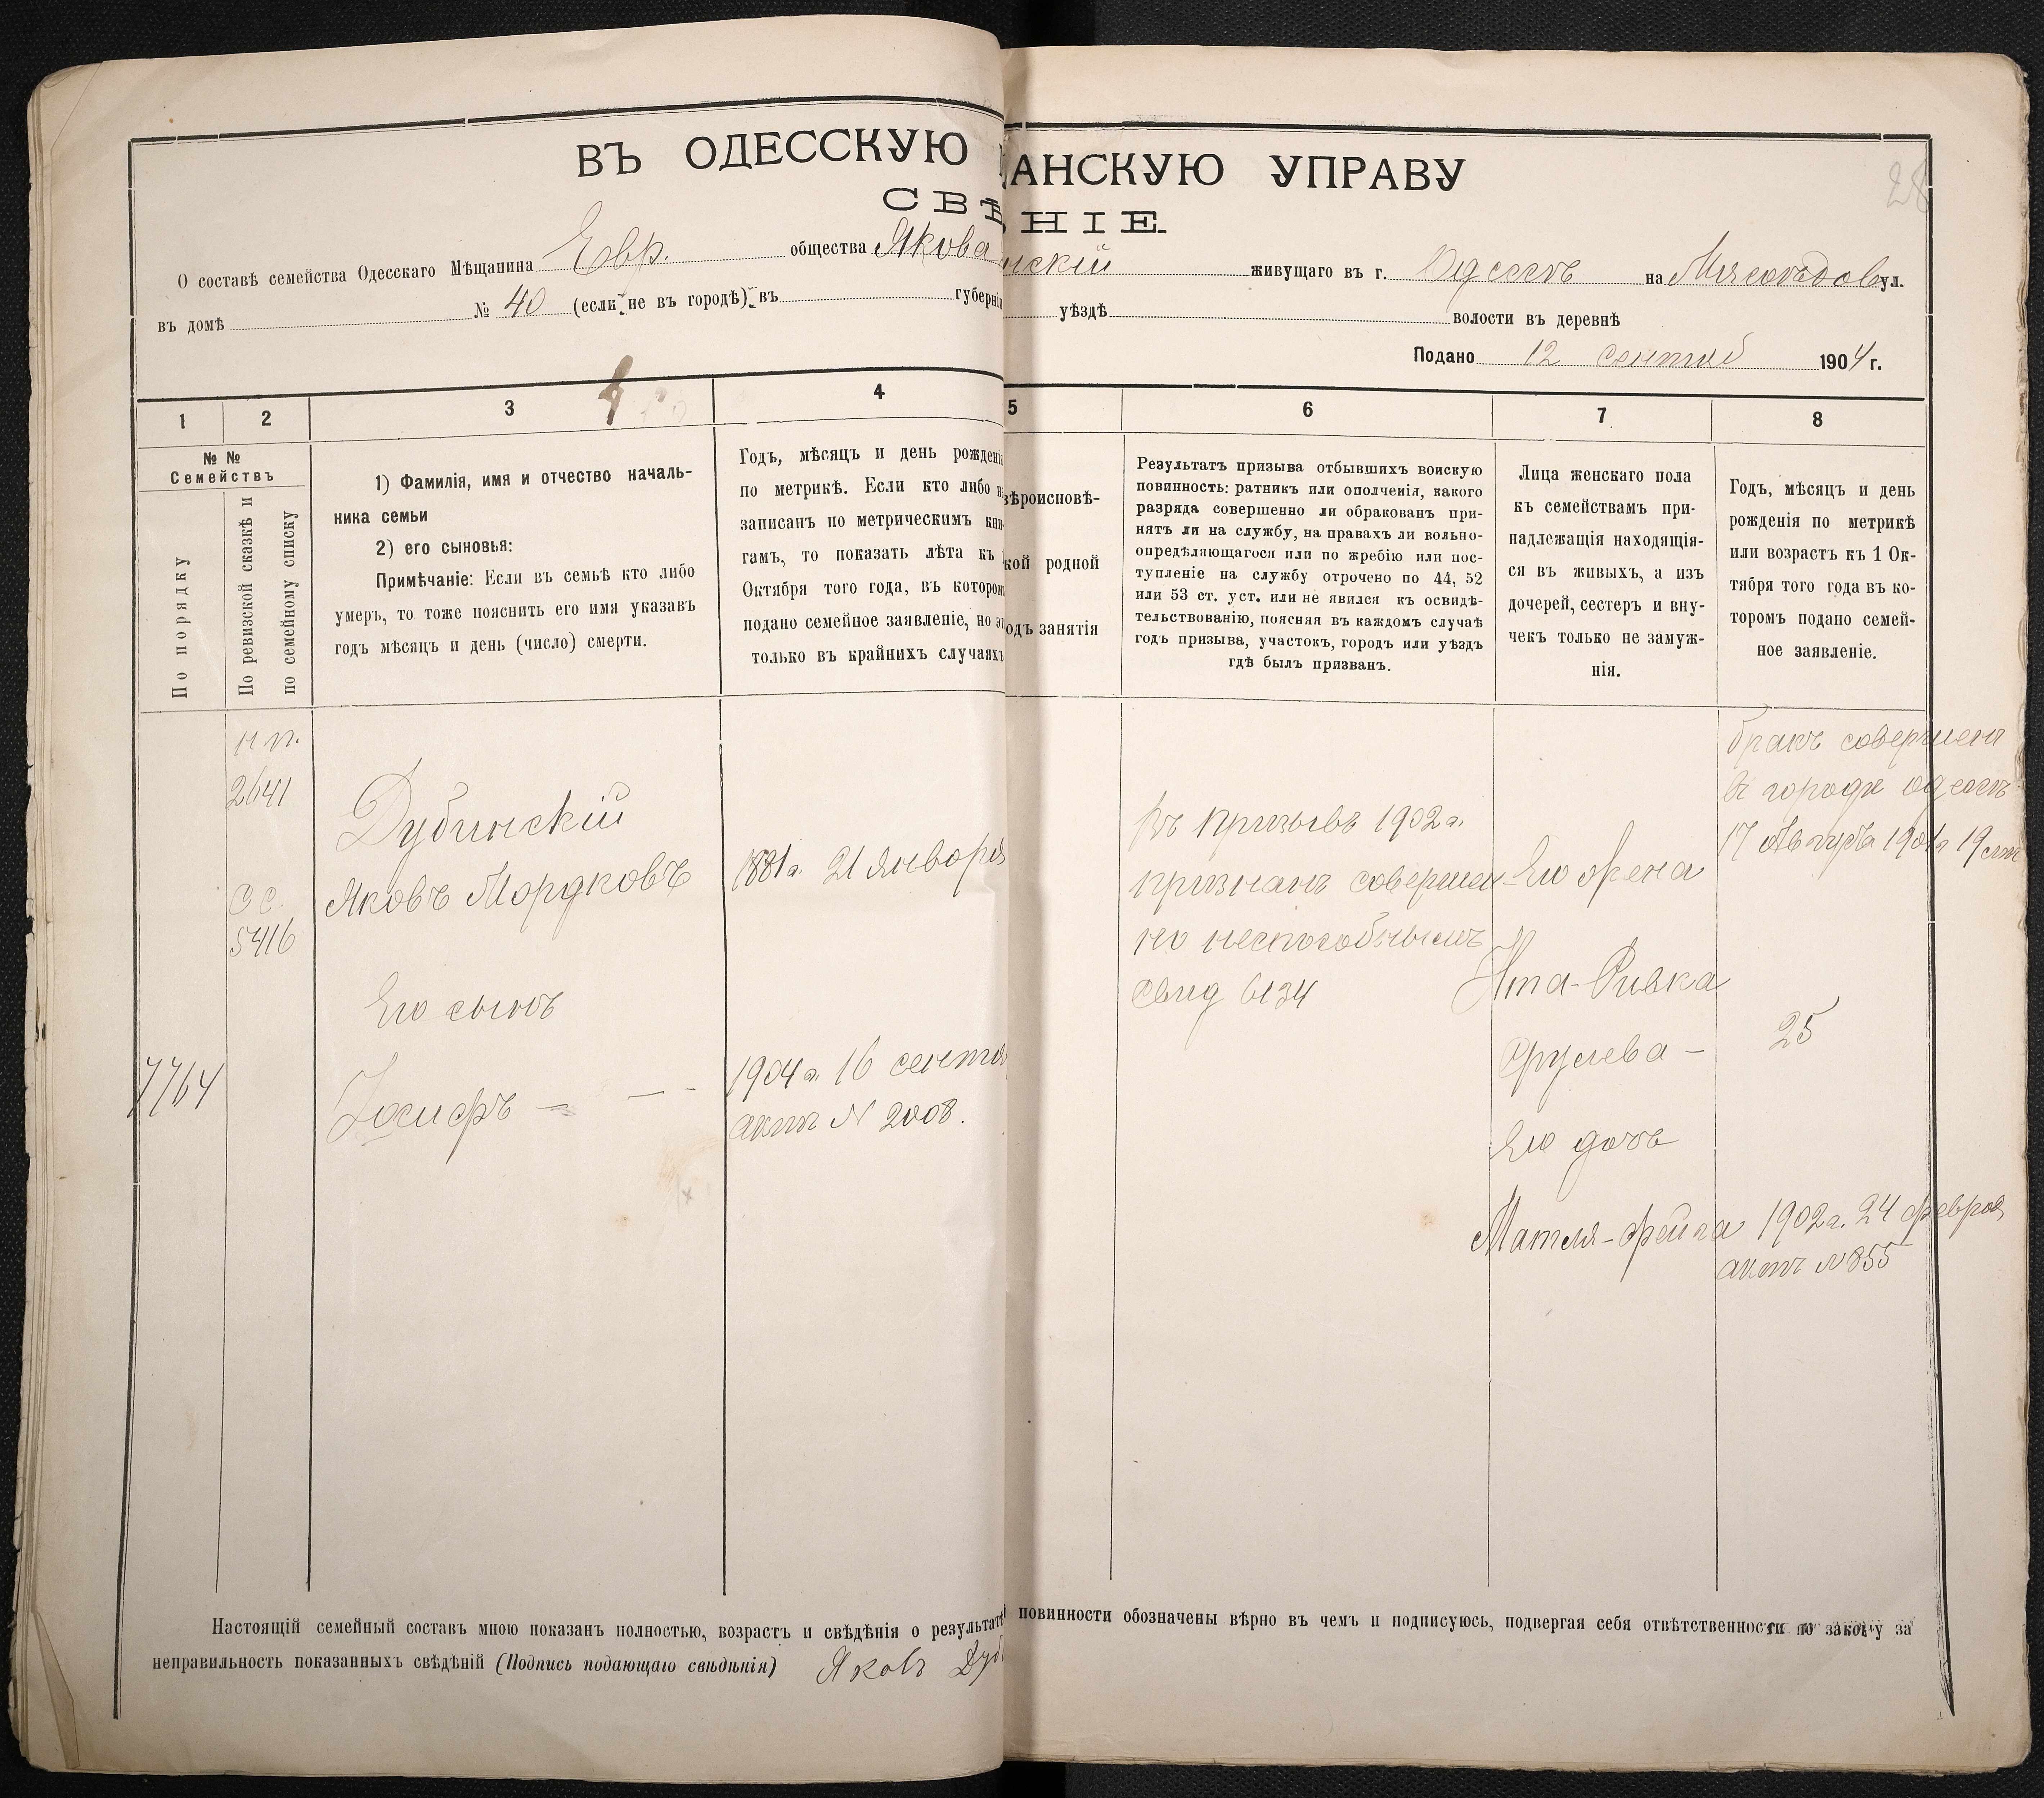 ВЪ ОДЕССКУЮ
АНСКУЮ УПРАВУ
СВѢ
НІЕ.
28
О составѣ семейства Одесскаго Мѣщанина Евр. общества Якова
нскій живущаго въ г. Одессѣ на Мясоѣдов ул.
въ домѣ № 40 (если не въ городѣ) въ губерні
уѣздѣ волости въ деревнѣ
Подано 12 сентяб 1904 г.
1 2 3 4 5 6 7 8
№ №
Семействъ
По порядку
По ревизской сказкѣ и
по семейному списку
1) Фамилія, имя и отчество началь-
ника семьи
2) его сыновья:
Примѣчаніе: Если въ семьѣ кто либо
умеръ, то тоже пояснить его имя указавъ
годъ мѣсяцъ и день (число) смерти.
Годъ, мѣсяцъ и день рожденія
по метрикѣ. Если кто либо не
записанъ по метрическимъ кни-
гамъ, то показать лѣта къ 1
Октября того года, въ котором
подано семейное заявленіе, но эт
только въ крайнихъ случаяхъ
вѣроисповѣ-
кой родной
одъ занятія
Результатъ призыва отбывшихъ воискую
повинность: ратникъ или ополченія, какого
разряда совершенно ли обракованъ при-
нятъ ли на службу, на правахъ ли вольно-
опредѣляющагося или по жребію или пос-
тупленіе на службу отрочено по 44, 52
или 53 ст. уст. или не явился къ освидѣ-
тельствованію, поясняя въ каждомъ случаѣ
годъ призыва, участокъ, городъ или уѣздъ
гдѣ былъ призванъ.
Лица женскаго пола
къ семействамъ при-
надлежащія находящія-
ся въ живыхъ, а изъ
дочерей, сестеръ и вну-
чекъ только не замуж-
нія.
Годъ, мѣсяцъ и день
рожденія по метрикѣ
или возрастъ къ 1 Ок-
тября того года въ ко-
торомъ подано семей-
ное заявленіе.
н п.
2641
С С.
5416
7764
Дубинскій
Яковъ Мордковъ
Его сынъ
Іосифъ — — -
1881 г. 21 января
1904 г. 16 сентя
актъ N 2008.
въ призывъ 1902 г.
признанъ совершен-
но неспособнымъ
свид 6134
Его жена
Ита-Ривка
Срулева -
Его дочь
Матля-Фейга
бракъ совершенъ
в городе одессѣ
17 Августа 1901 г 19
25
1902 г. 24 феврал
актъ N 855
Настоящій семейный составъ мною показанъ полностью, возрастъ и свѣдѣнія о результатѣ
повинности обозначены вѣрно въ чемъ и подписуюсь, подвергая себя отвѣтственности по закону за
неправильность показанныхъ свѣдѣній (Подпись подающаго свѣдѣнія) Яковъ Дуб